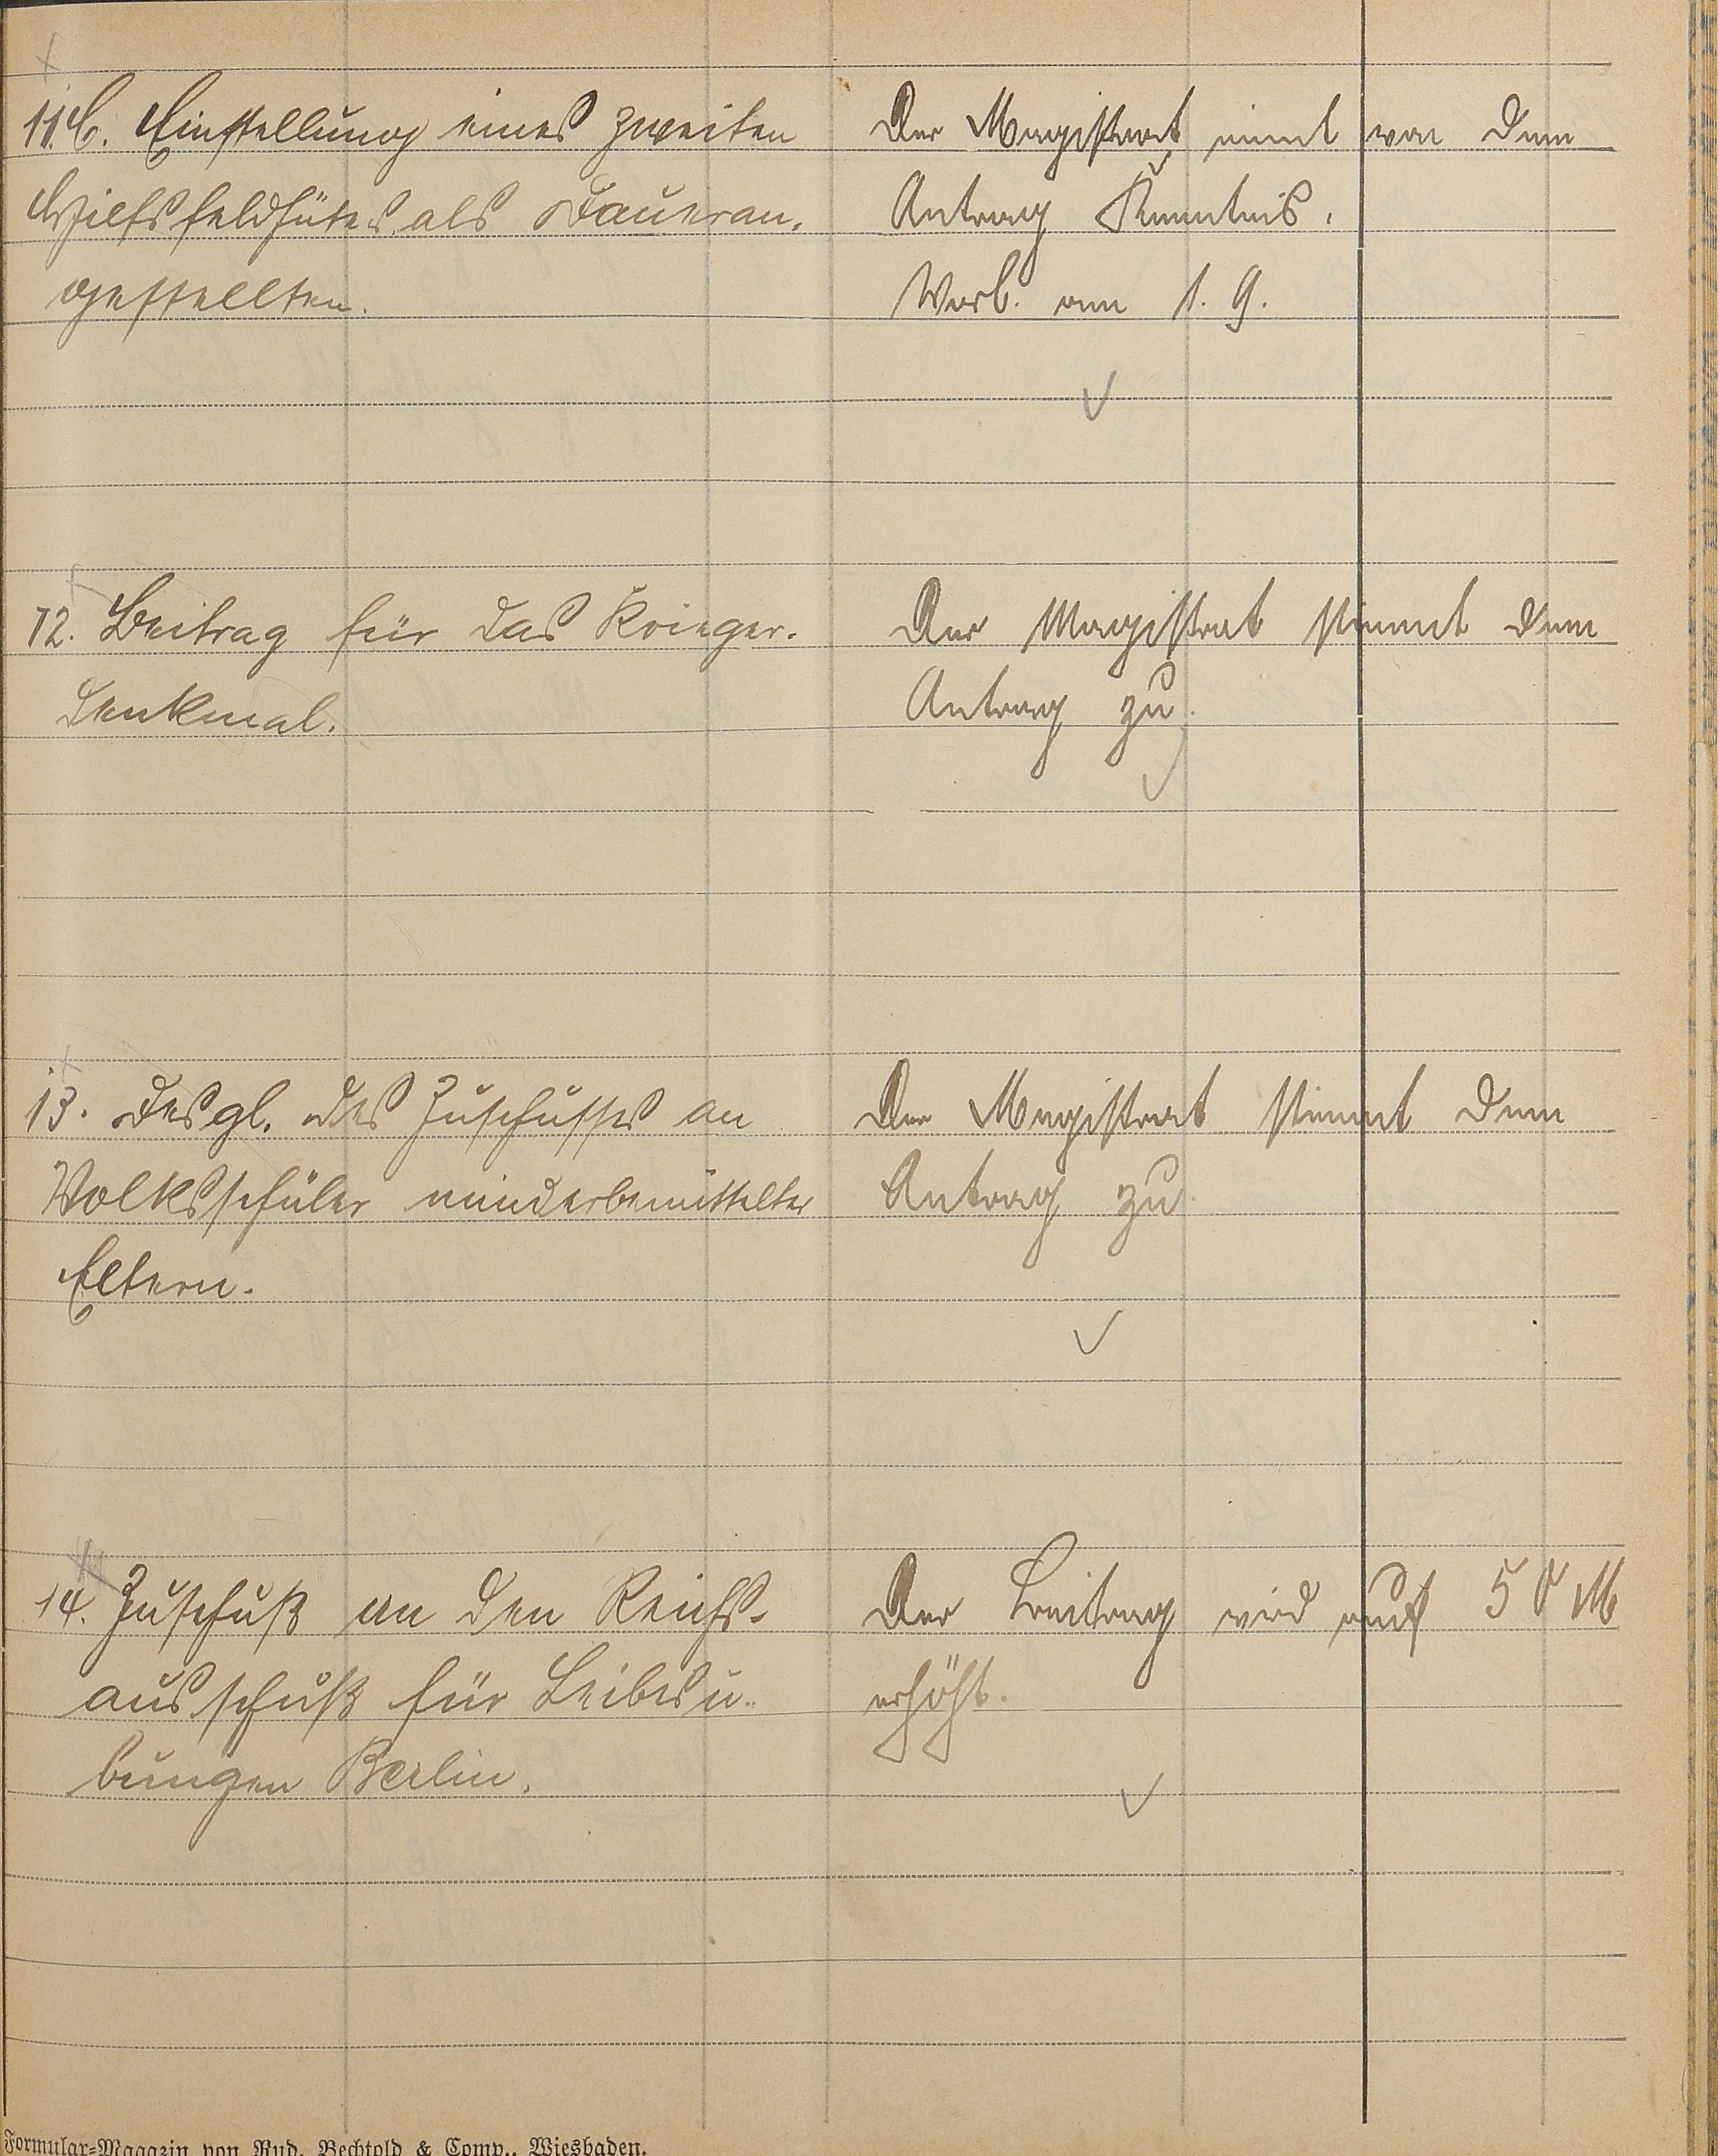 11.b. Einstellung eines zweiten
Hilfsfeldhüters als Daueran-
gestellten.
Der Magistrat nimt von dem
Antrag Kenntnis.
am 1. 9.
12. Beitrag für das Krieger-
denkmal.
Der Magistrat stimmt dem
Antrag zu.
13. Desgl. des Zuschusses an
Volksschüler minderbemittelter
Eltern.
Der Magistrat stimmt dem
Antrag zu.
14. Zuschuß an den Reichs-
ausschuß für Leibesü-
bungen Berlin.
Der Beitrag wird auf 50 M
erhöht.
Formular-Magazin von Rud. Bechtold & Comp., Wiesbaden.